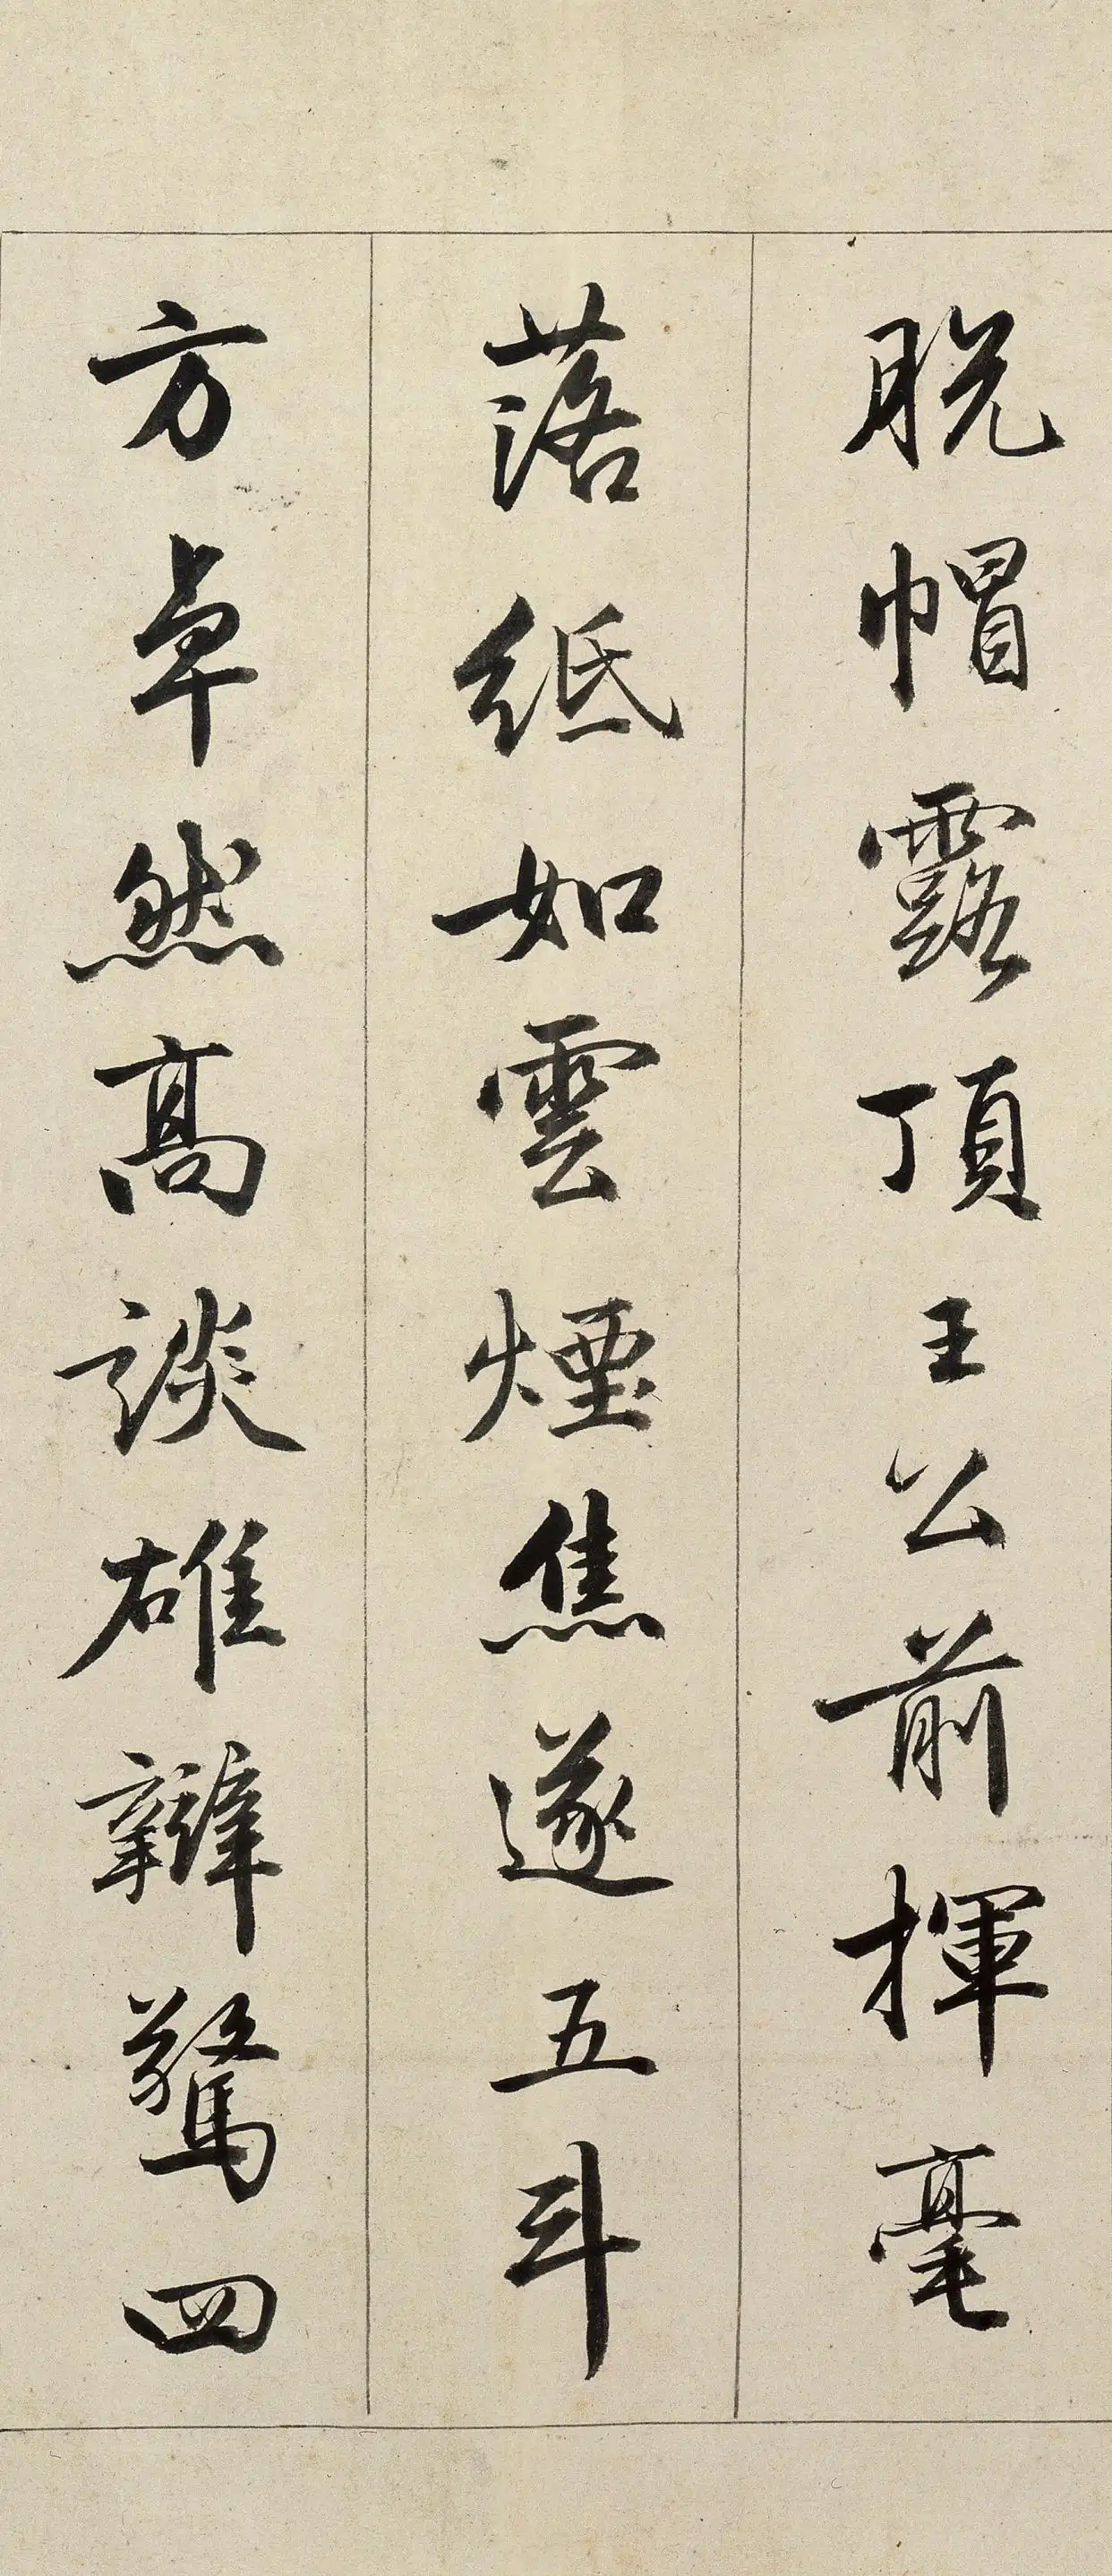 脱帽露頂王公前揮毫
落紙如雲煙焦遂五斗
方卓然高談雄辯驚四